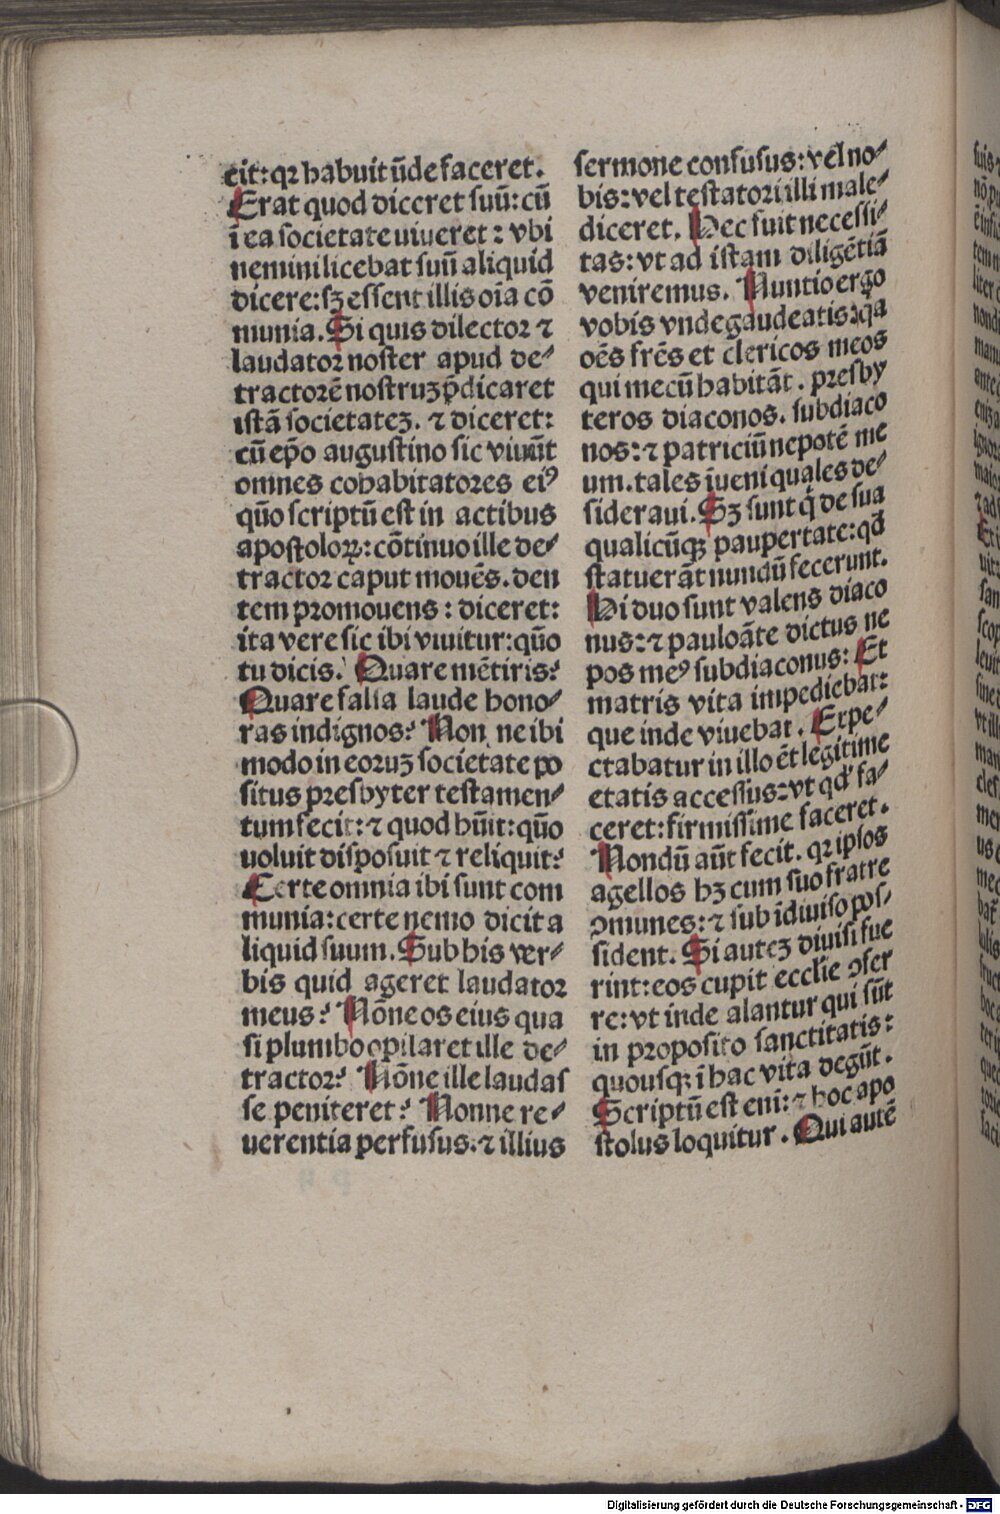 cit: qꝛ habuit ūde faceret.
Erat quod diceret suū: cū
ī ea societate uiueret: vbi
nemini licebat suū aliquid
dicere: sꝫ essent illis oīa cō
munia. Si quis dilectoꝛ ⁊
laudatoꝛ noster apud de⸗
tractoꝛē nostruꝫ p̄dicaret
istā societateꝫ. ⁊ diceret:
cū ep̄o augustino sic viuūt
omnes cohabitatoꝛes eiꝰ
quō scriptū est in actibus
apostoloꝝ: cōtinuo ille de⸗
tractoꝛ caput mouēs. den
tem pꝛomouens: diceret:
ita vere sic ibi viuitur: quō
tu dicis. Quare mētiris?
Quare falsa laude hono⸗
ras indignos? Non ne ibi
modo in eoꝛuꝫ societate po
situs pꝛesbyter testamen⸗
tum fecit: ⁊ quod hūit: quō
uoluit disposuit ⁊ reliquit?
Certe omnia ibi sunt com
munia: certe nemo dicit a
liquid suum. Sub his ver⸗
bis quid ageret laudatoꝛ
meus? Nōne os eius qua
si plumbo opilaret ille de⸗
tractoꝛ? Nōne ille laudas
se peniteret? Nonne re⸗
uerentia perfusus. ⁊ illius
sermone confusus: vel no⸗
bis: vel testatoꝛi illi male⸗
diceret. Hec fuit necessi⸗
tas: vt ad istam diligētiā
veniremus. Nuntio ergo
vobis vnde gaudeatis: qꝛ
oēs fr̄es et clericos meos
qui mecū habitāt. pꝛesby
teros diaconos. subdiaco
nos: ⁊ patriciū nepotē me
um. tales īueni quales de⸗
sideraui. Sꝫ sunt q̄ de sua
qualicūqꝫ paupertate: qđ
statuerāt nundū fecerunt.
Hi duo sunt valens diaco
nus: ⁊ paulo āte dictus ne
pos meꝰ subdiaconus: Et
matris vita impediebat:
que inde viuebat. Expe⸗
ctabatur in illo ēt legitime
etatis accessus: vt qđ fa⸗
ceret: firmissime faceret.
Nondū aūt fecit. qꝛ ipsos
agellos hꝫ cum suo fratre
ꝯmunes: ⁊ sub īdiuiso pos⸗
sident. Si auteꝫ diuisi fue
rint: eos cupit ecclīe ꝯfer
re: vt inde alantur qui sūt
in pꝛoposito sanctitatis:
quousqꝫ ī hac vita degūt.
Scriptū est eni: ⁊ hoc apo
stolus loquitur. Qui autē
Digitalisierung gefördert durch die Deutsche Forschungsgemeinschaft - DFG